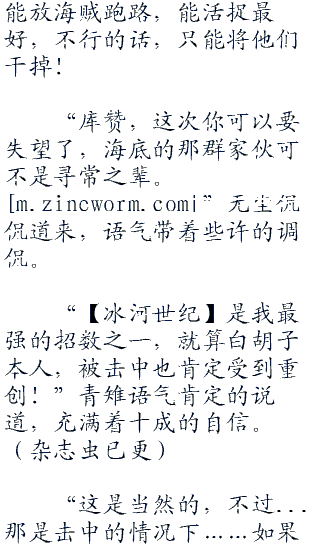 能放海贼跑路，能活捉最
好，不行的话，只能将他们
干掉！
“库赞，这次你可以要
失望了，海底的那群家伙可
不是寻常之辈。
[m.zincworm.com|”无尘侃
侃道来，语气带着些许的调
侃。
“【冰河世纪】是我最
强的招数之一，就算白胡子
本人，被击中也肯定受到重
创！”青雉语气肯定的说
道，充满着十成的自信。
（杂志虫已更）
“这是当然的，不过...
那是击中的情况下……如果